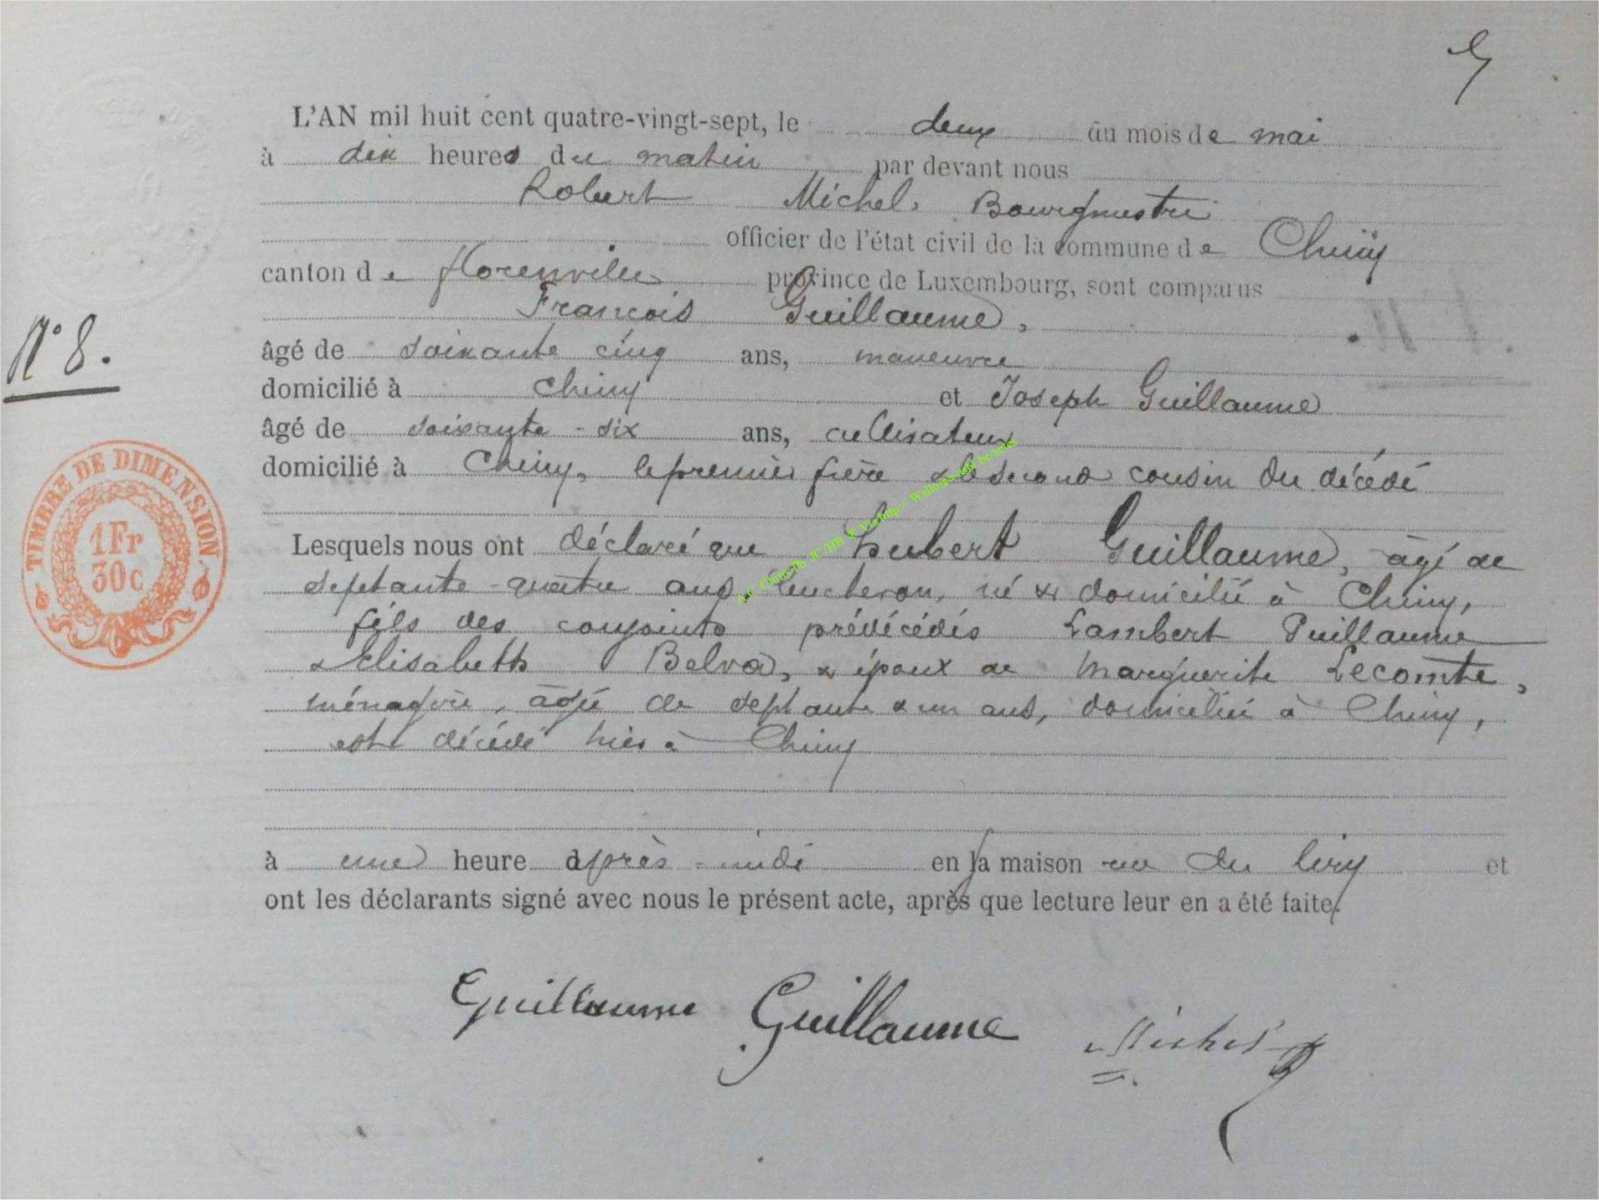 L'AN mil huit cent quatre-vingt-sept, le deux du mois de mai
à dix heures du matin par devant nous
Robert Michel, Bourgmestre
officier de l'état civil de la commune de Chiny
canton de florenville province de Luxembourg, sont comparus
François Guillaume,
N° 8.
âgé de soixante cinq ans, manœuvre
domicilié à Chiny et Joseph Guillaume
âgé de soixante-six ans, cultivateur
domicilié à Chiny, le premier frère & le second cousin du décédé
TIMBRE DE DIMENSION
1 Fr
30c
Lesquels nous ont déclaré que hubert Guillaume, âgé de
septante-quatre ans, bucheron, né & domicilié à Chiny,
fils des conjoints prédécédés Lambert Guillaume
& Elisabeth Belva, & époux de Marguerite Lecomte,
ménagère, âgée de septante & un ans, domiciliée à Chiny,
est décédé hier à Chiny
à une heure après-midi en sa maison rue du et
ont les déclarants signé avec nous le présent acte, après que lecture leur en a été faite.
Guillaume Guillaume Michel